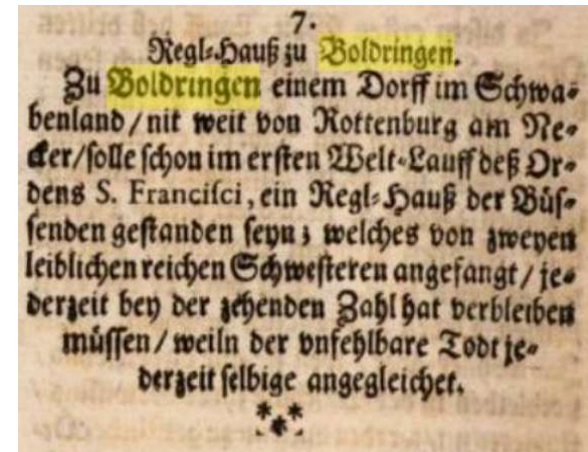 7.
Regl-Hauß zu Boldringen.
Zu Boldringen einem Dorff im Schwa-
benland / nit weit von Rottenburg am Ne-
cker / solle schon im ersten Welt-Lauff deß Or-
dens S. Francisci, ein Regl-Hauß der Büs-
senden gestanden seyn; welches von zweyen
leiblichen reichen Schwesteren angefangt / je-
derzeit bey der zehenden Zahl hat verbleiben
müssen / weiln der vnfehlbare Todt je-
derzeit selbige angegleichet.